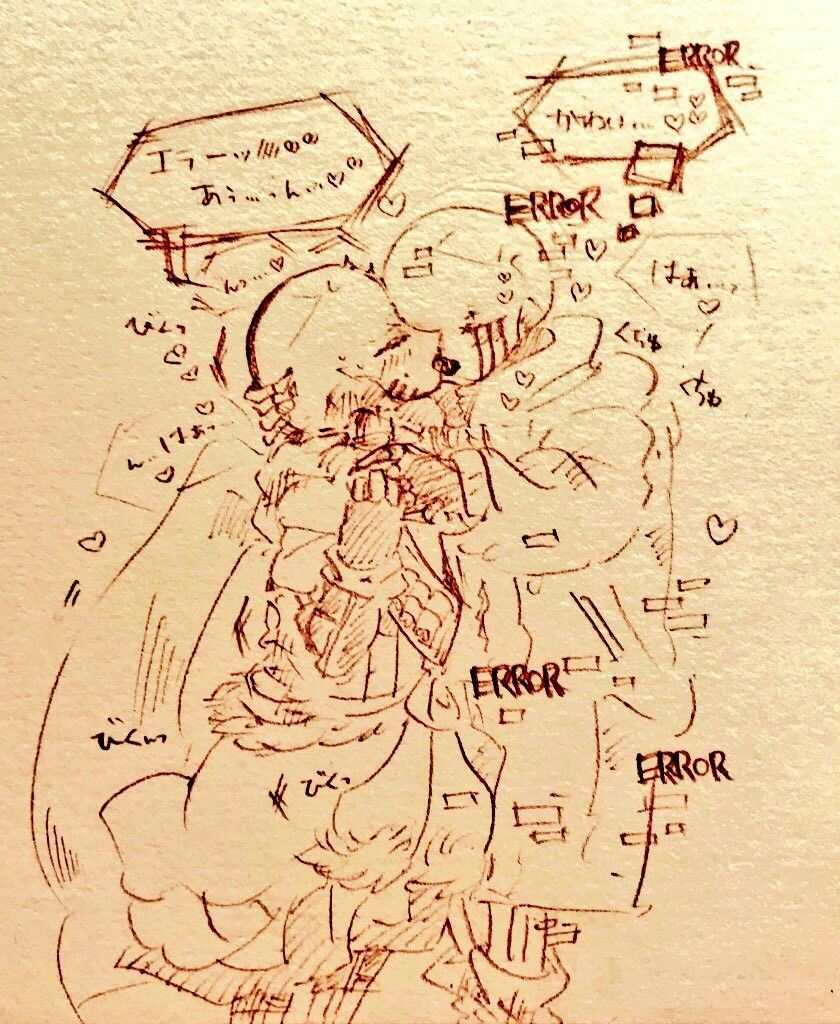 ERROR
かわい…♡♡♡
エラーッ////♡♡
あぅ…っん…♡♡
ERROR
んっ…♡
はぁ…っ
♡
びくっ
くちゅ
くちゅ
ん…はぁっ
♡
ERROR
びくっ
ERROR
びくっ